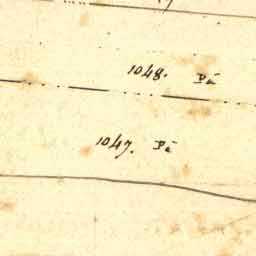 1048. Pà
1047. Pà